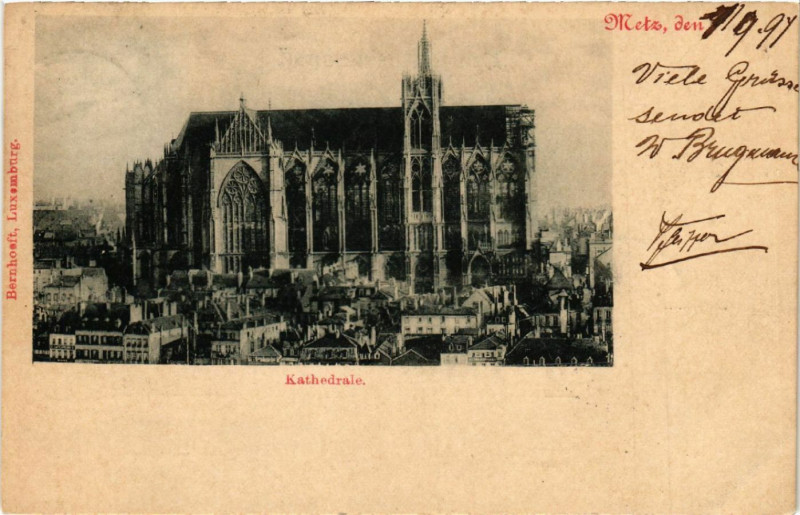 Metz, den 7/9.97
Viele Grüsse
sendet
W Brugmann
Bernhoeft, Luxemburg.
Kathedrale.